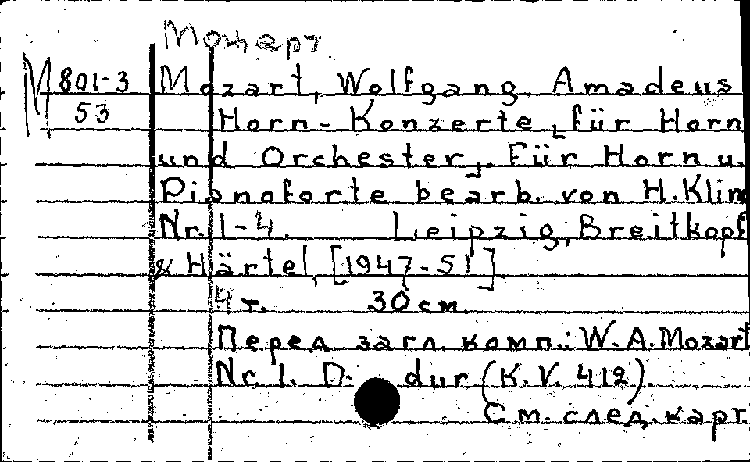 Моцарт
М 801-3
53
Mozart, Wolfgang Amadeus
Horn-Konzerte [für Horn
und Orchester]. Für Horn u.
Pianoforte bearb. von H. Klin
Nr. 1-4. Leipzig, Breitkopf
& Härtel, [1947-51]
4 т. 30 см.
Перед загл. комп.: W. A. Mozart
Nr. 1. D. dur (K. V. 412).
См. след. карт.